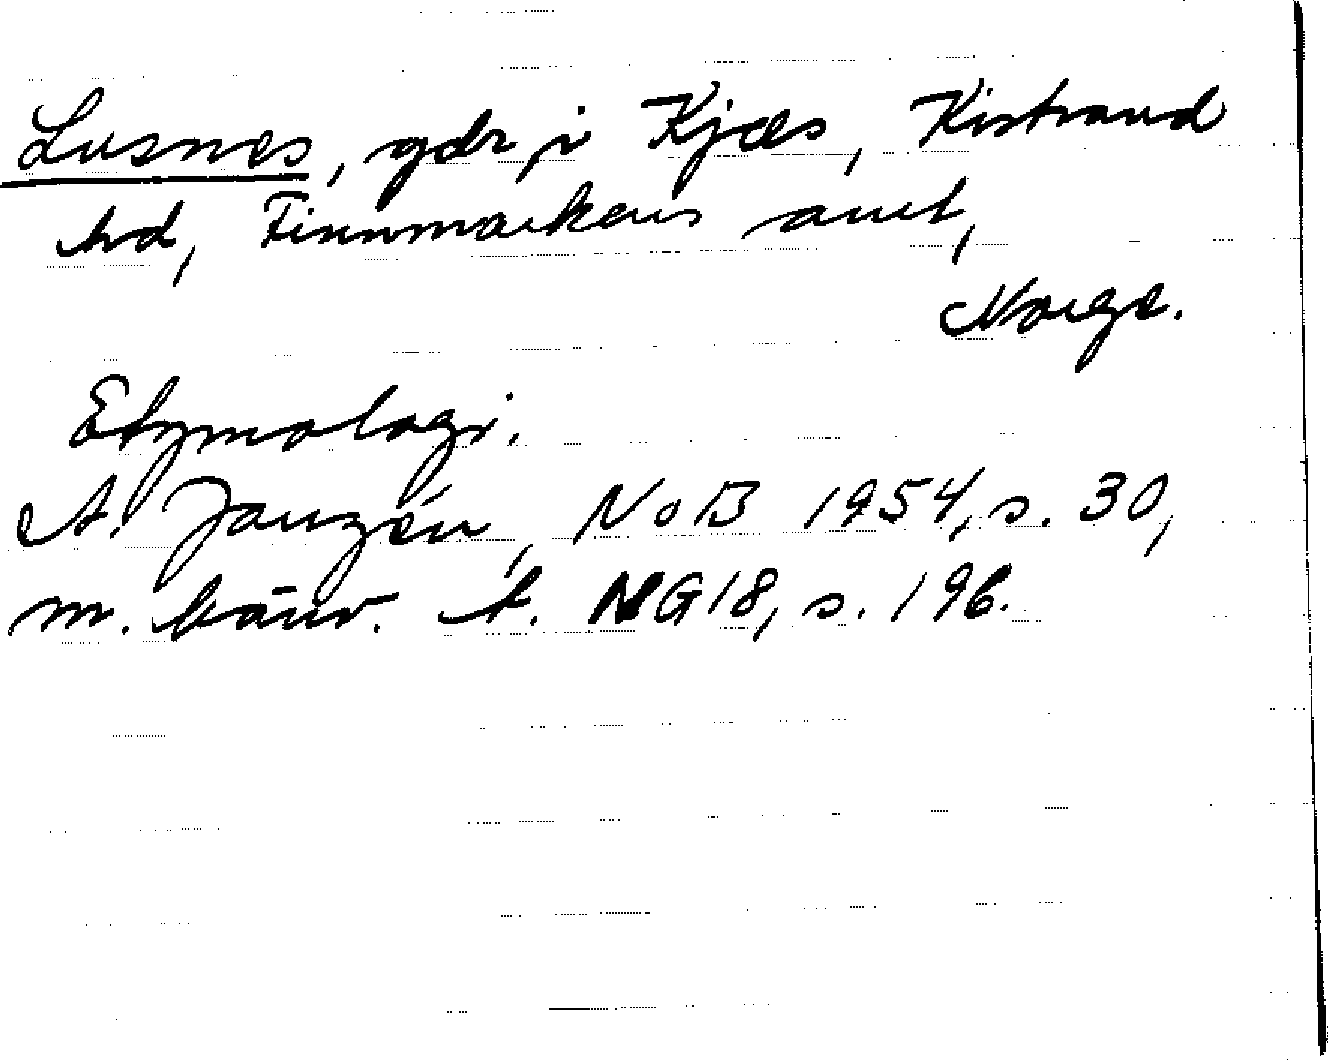 Lusnes, gdr i Kjæs, Kistrand
hrd, Finnmarkens amt,
Norge.
Etymologi.
A. Janzén, NoB 1954, s. 30,
m. hänv. t. NG 18, s. 196.